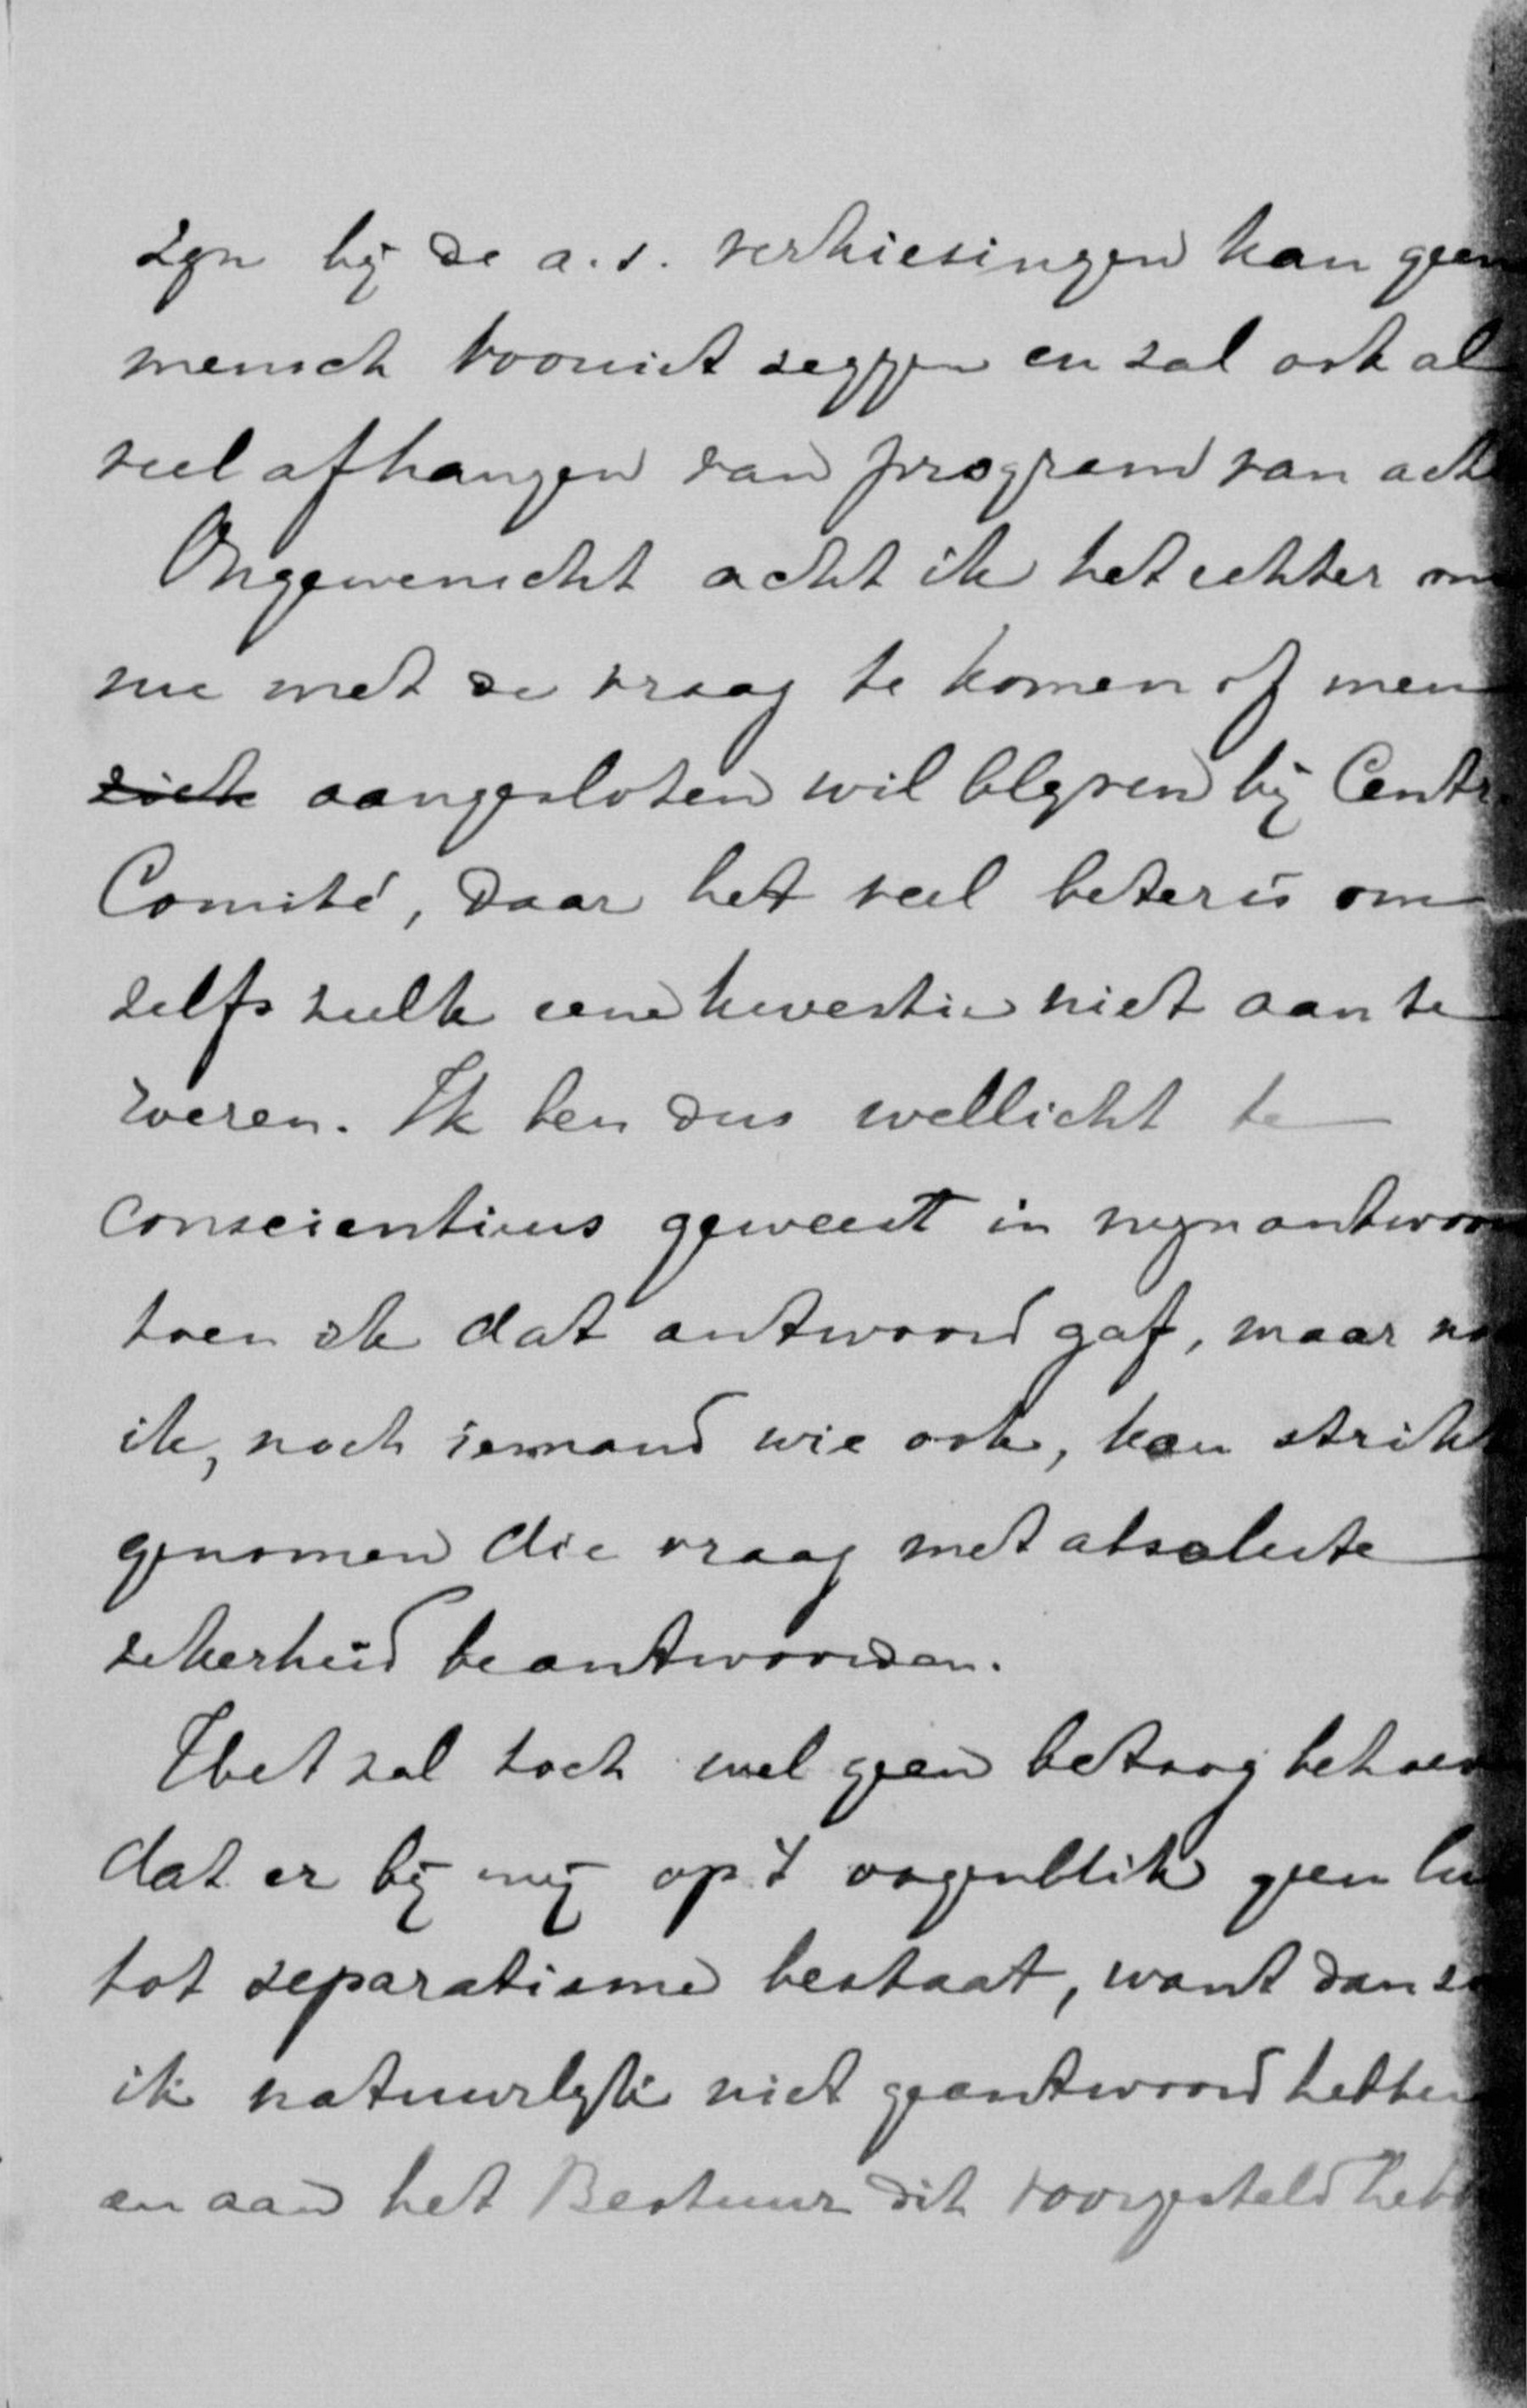 zyn bij de a.s. verkiesingen kan geen
mensch vooruit zeggen en zal ook al
veel afhangen van program van acti
Ongewenscht acht ik het echter om
nu met de vraag te komen of men
zich aangesloten wil blyven bij Centr.
Comité, daar het veel beter is om
zelfs zulk eene kwestie niet aan te
roeren. Ik ben dus wellicht te
conscientieus geweest in myn antwoor
toen ik dat antwoord gaf, maar no
ik, noch iemand wie ook, kan strikt
genomen die vraag met absolute
zekerheid beantwoorden.
Het zal toch wel geen betoog behoev
dat er bij mij op 't oogenblik geen lu
tot separatisme bestaat, want dan zo
ik natuurlyk niet geantwoord hebben
en aan het Bestuur dit voorgesteld hebb